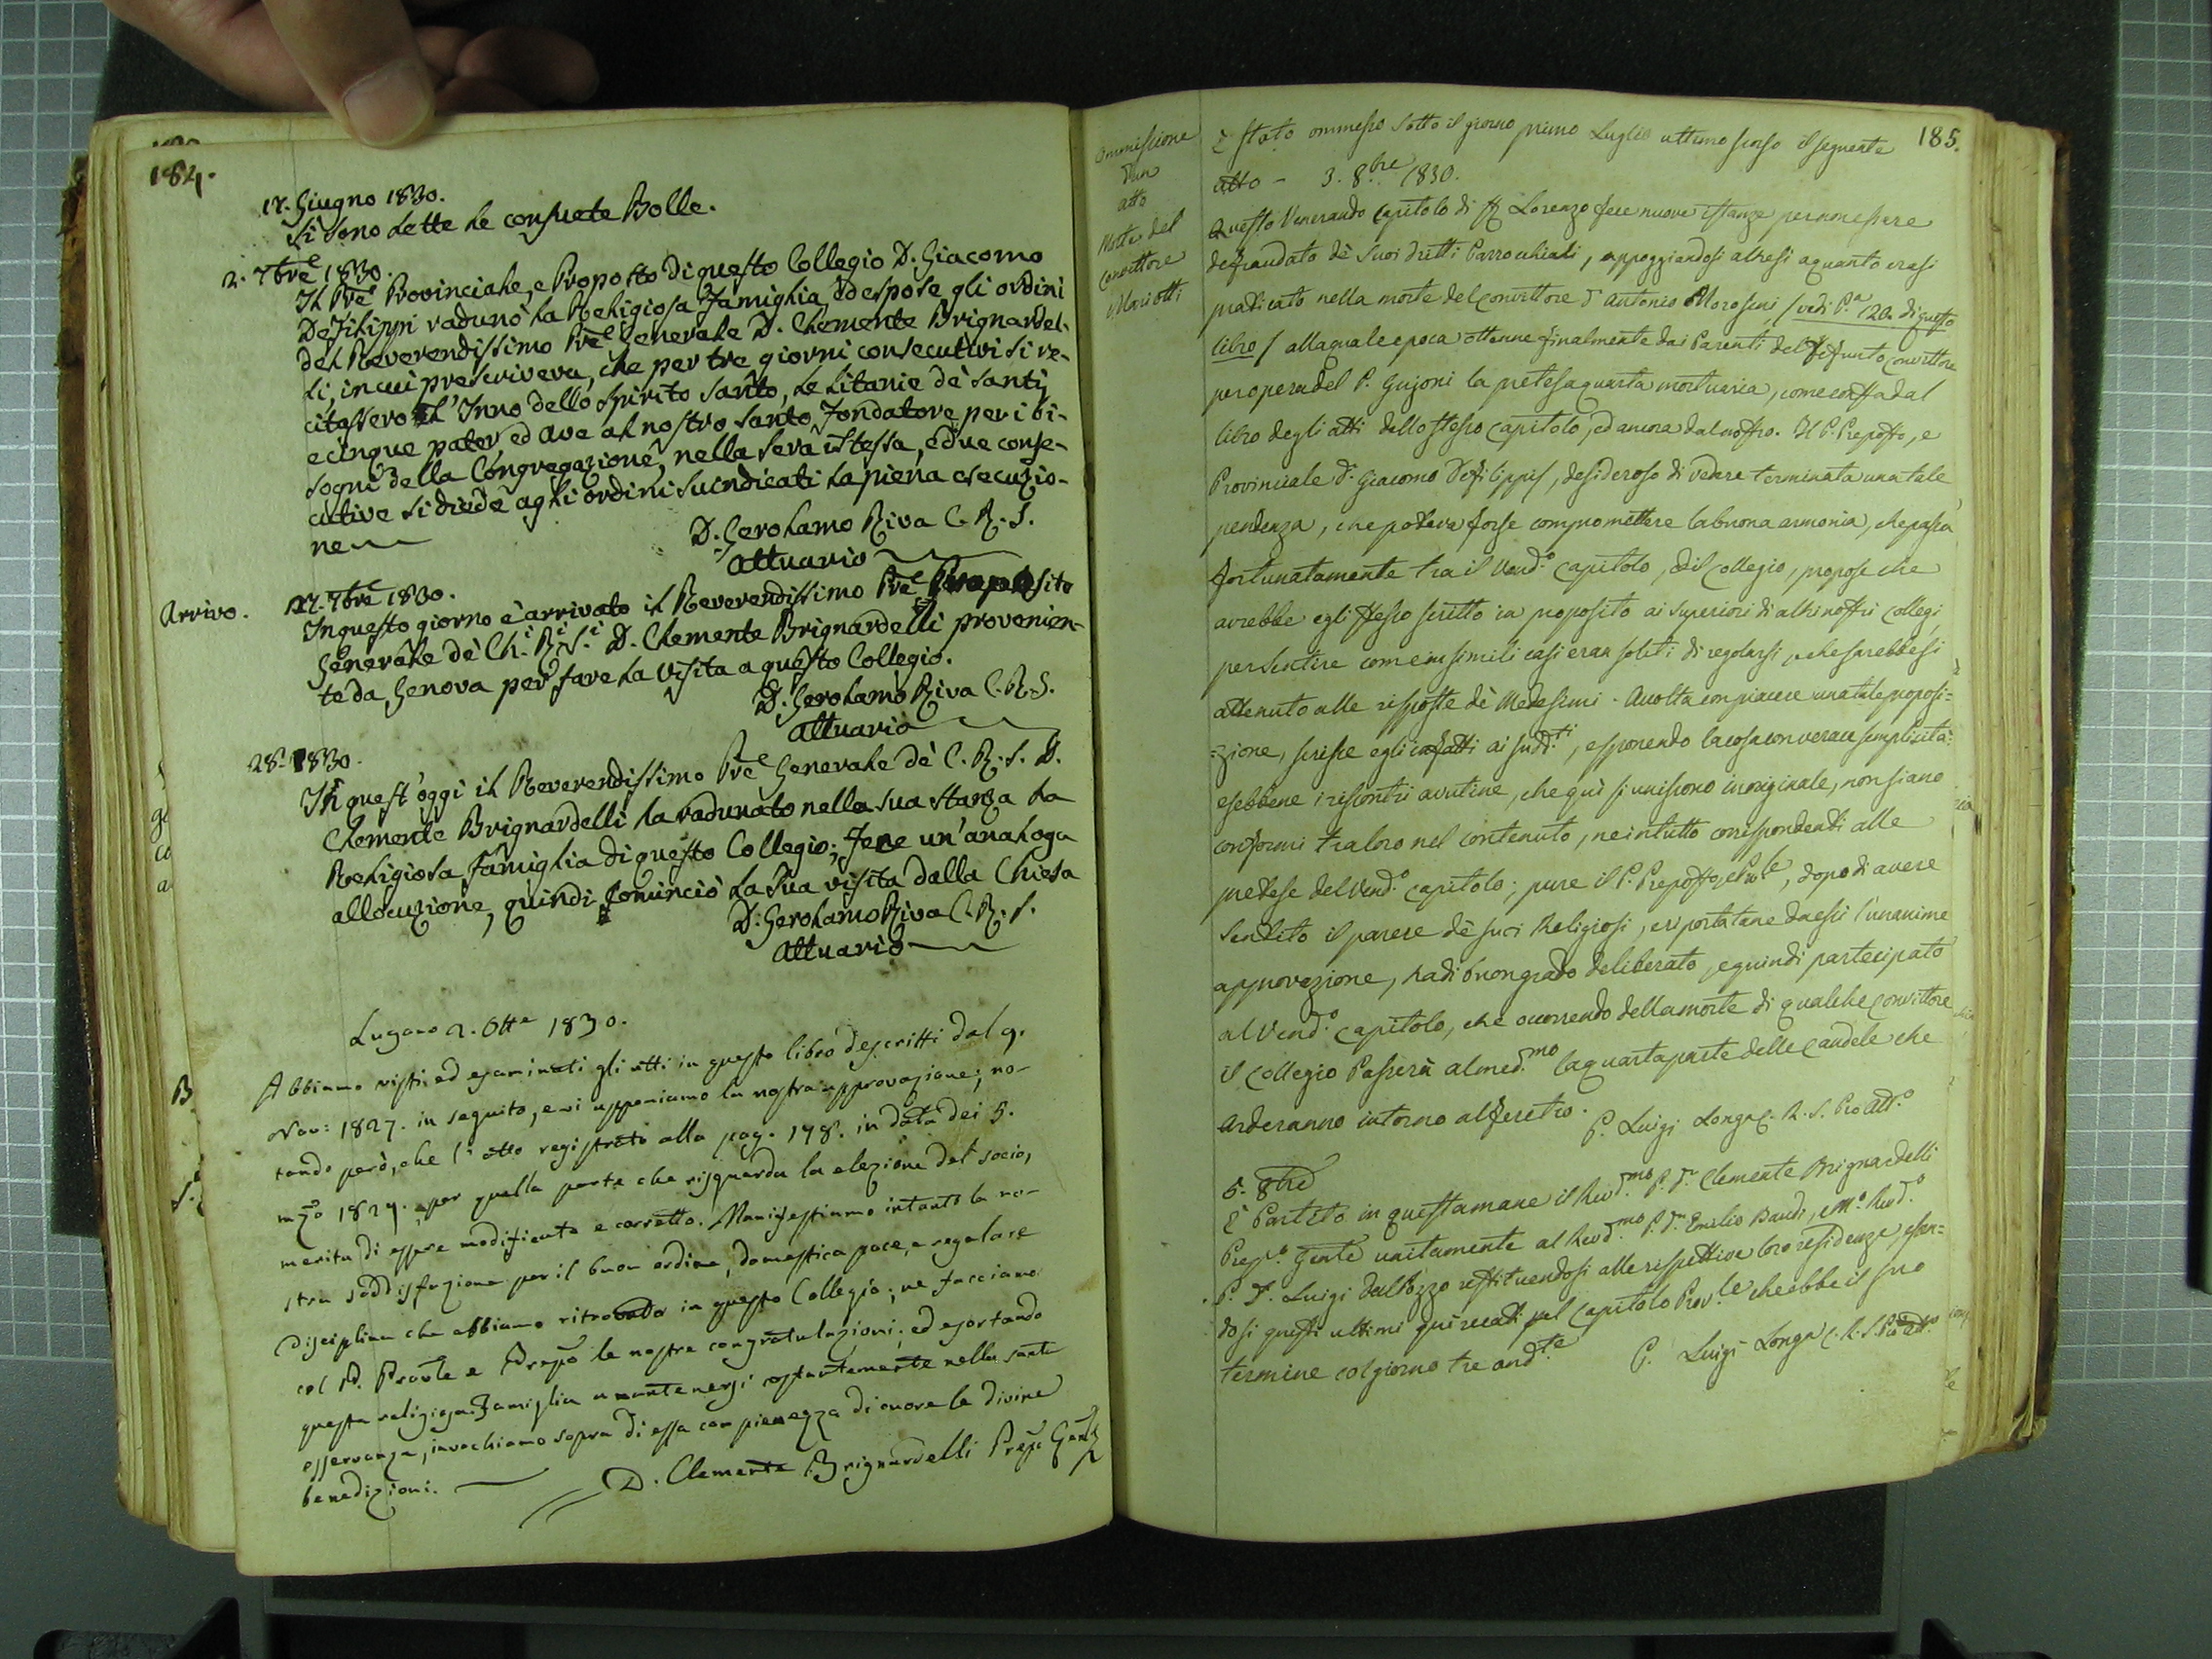 184.
17. Giugno 1830.
Si sono Lette Le consuete Bolle.
2. 7bre 1830.
Il Pre Provinciale, e Proposto di questo Collegio D. Giacomo
DeFilippi radunò La Religiosa Famiglia, ed espose gli ordini
del Reverendissimo Pre Generale D. Clemente Brignardel-
li, in cui prescriveva, che per tre giorni consecutivi si re-
citassero L'Inno dello Spirito Santo, Le Litanie de' Santi,
e cinque pater, ed ave al nostro Santo Fondatore per i bi-
sogni della Congregazione, nella sera istessa, e due conse-
cutive si diede agli ordini suindicati La piena esecuzio-
ne
D. Gerolamo Riva C. R. S.
Attuario
Arrivo.
27. 7bre 1830.
In questo giorno è arrivato il Reverendissimo Pre Preposito
Generale de' Ch.i R.i S.i D. Clemente Brignardelli provenien-
te da Genova per fare La Visita a questo Collegio.
D. Gerolamo Riva C. R. S.
Attuario
28. 1830.
In quest'oggi il Reverendissimo Pre Generale de' C. R. S. D.
Clemente Brignardelli ha radunato nella sua stanza La
Religiosa Famiglia di questo Collegio; Fece un'analoga
allocuzione, quindi cominciò La Sua visita dalla Chiesa
D. Gerolamo Riva C. R. S.
Attuario
Lugano 2. Otte 1830.
Abbiamo visti, ed esaminati gli atti in questo libro descritti dal 9.
Nov: 1827. in seguito, e vi apponiamo la nostra approvazione; no-
tando però, che l'atto registrato alla pag. 178. in data dei 5.
mzo 1829. per quella parte che risguarda la elezione del socio,
merita di essere modificato e corretto. Manifestiamo intanto la no-
stra soddisfazione per il buon ordine, domestica pace, e regolare
disciplina che abbiamo ritrovato in questo Collegio; ne facciamo
col P. Provle e Prepo le nostre congratulazioni; ed esortando
questa religiosa Famiglia a mantenersi costantemente nella santa
osservanza, invochiamo sopra di essa con pienezza di cuore le divine
benedizioni.
D. Clemente Brignardelli Prepo Genle
185.
Ommissione
d'un
atto
Morte del
convittore
Mariotti
È stato ommesso sotto il giorno primo Luglio ultimo scorso il seguente
atto - 3. 8bre 1830.
Questo Venerando Capitolo di S. Lorenzo fece nuove istanze per non essere
defraudato de' suoi dritti Parrochiali, appoggiandosi altresì a quanto erasi
praticato nella morte del Convittore D. Antonio Morosini (vedi P.a 120. di questo
libro) alla quale epoca ottenne finalmente dai Parenti del defunto convittore
per opera del P. Gujoni la pretesa quarta mortuaria, come consta dal
libro degli atti dello stesso Capitolo, ed ancora dal nostro. Il P. Preposto, e
Provinciale D. Giacomo Defilippis, desideroso di vedere terminata una tale
pendenza, che poteva forse compromettere la buona armonia, che passa
fortunatamente tra il Vend.o Capitolo, ed il Collegio, propose che
avrebbe egli stesso scritto in proposito ai Superiori di altri nostri Collegi,
per sentire come in simili casi eran soliti di regolarsi, e che sarebbesi
attenuto alle risposte de' Medesimi. Accolta con piacere una tale proposi=
=zione, scrisse egli infatti ai sudd.ti, esponendo la cosa con verace semplicità:
e sebbene i riscontri avutine, che quì si uniscono in originale, non siano
conformi tra loro nel contenuto, ne in tutto corrispondenti alle
pretese del Vend.o Capitolo; pure il P. Preposto, e Pvle, dopo di avere
sentito il parere de' suoi Religiosi, e riportatane da essi l'unanime
approvazione, ha di buon grado deliberato, e quindi partecipato
al Vend.o Capitolo, che occorrendo della morte di qualche Convittore
il Collegio Passerà al med.mo la quarta parte delle candele che
arderanno intorno al feretro.
P. Luigi Longa C. R. S. Pro Att.o
5. 8bre
È Partito in questa mane il Revd.mo P. D. Clemente Brignardelli
Prep.o Genle unitamente al Revd.mo P. D. Emilio Baudi, e M.o Revd.o
P. D. Luigi Dal Pozzo restituendosi alle rispettive loro residenze, essen=
dosi questi ultimi quì recati pel Capitolo Prov.le che ebbe il suo
termine col giorno tre and.te
P. Luigi Longa C. R. S. Pro Att.o